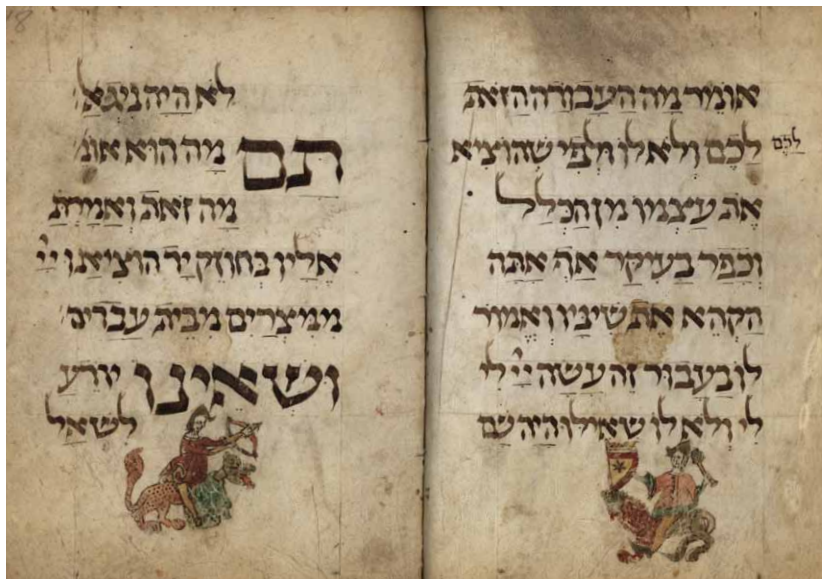 אומר מה העבודה הזאת
לכם ולא לו ולפי שהוציא
לכם
את עצמו מן הכלל
וכפר בעיקר אף אתה
הקהא את שיניו ואמור
לו בעבור זה עשה יי לי
לי ולא לו שאילו היה שם
18
לא היה ניגאל
תם מה הוא או׳
מה זאת ואמרת
אליו בחוזק יד הוציאנו יי
ממצרים מבית עבדים
ושאינו יודע
לשאל